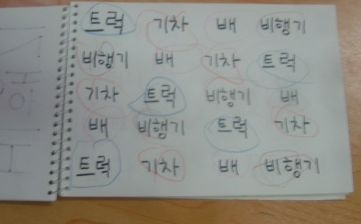 트럭 기차 배 비행기
비행기 배 기차 트럭
기차 트럭 비행기 배
배 비행기 트럭 기차
트럭 기차 배 비행기